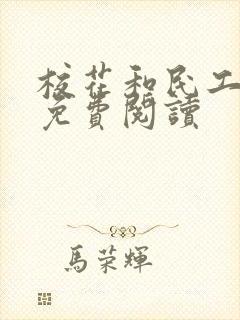 校花和民工
免費閱讀
馬榮輝